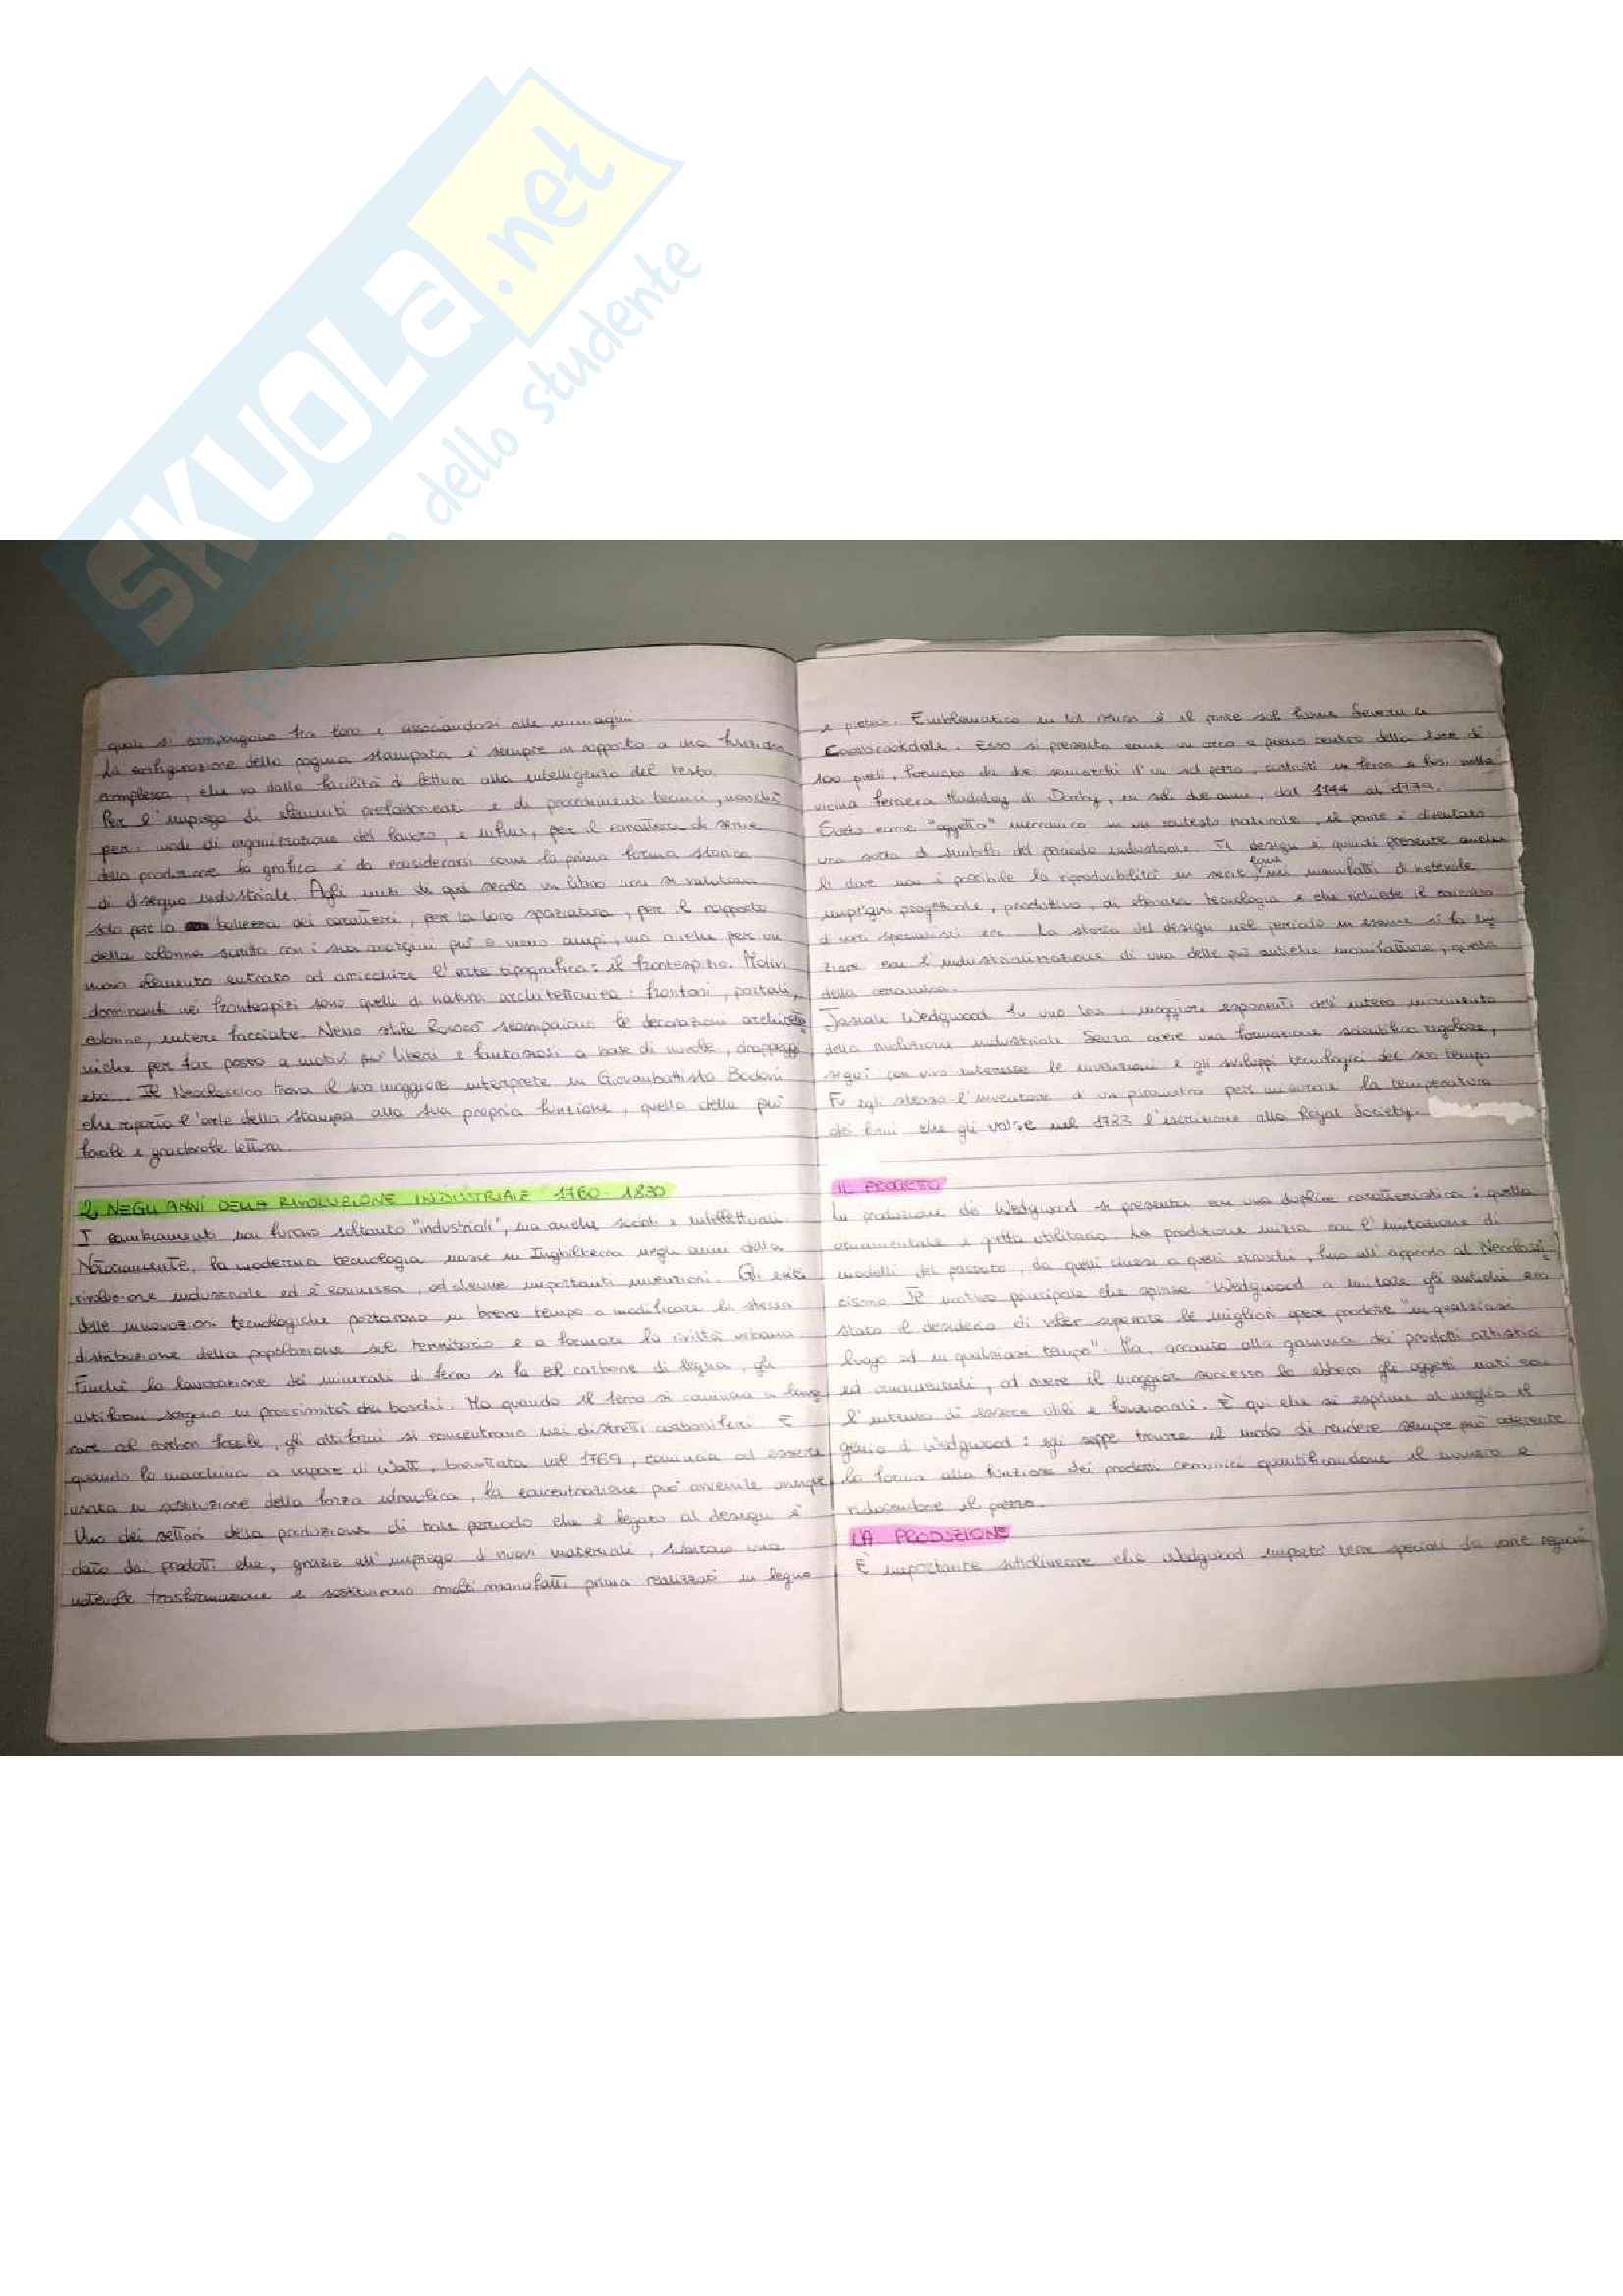 SKUOLA.net
il paradiso dello studente
quali si compongono fra loro e associandosi alle immagini.
La configurazione della pagina stampata è sempre in rapporto a una funzione
complessa, che va dalla facilità di lettura alla intelligenza del testo.
Per l'impiego di elementi prefabbricati e di procedimenti tecnici, nonché
per i modi di organizzazione del lavoro, e infine, per il carattere di serie
della produzione la grafica è da considerarsi come la prima forma storica
di disegno industriale. Agli inizi di quel secolo un libro non si valutava
solo per la bellezza dei caratteri, per la loro spaziatura, per il rapporto
della colonna scritta con i suoi margini più o meno ampi, ma anche per un
nuovo elemento entrato ad arricchire l'arte tipografica: il frontespizio. Motivi
dominanti nei frontespizi sono quelli di natura architettonica: frontoni, portali,
colonne, intere facciate. Nello stile Rococò scompaiono le decorazioni architetto
niche per far posto a motivi più liberi e fantasiosi a base di nuvole, drappeggi
etc.. Il Neoclassico trova il suo maggiore interprete in Giovanbattista Bodoni
che riportò l'arte della stampa alla sua propria funzione, quella della più
facile e gradevole lettura.
2. NEGLI ANNI DELLA RIVOLUZIONE INDUSTRIALE 1760-1830
I cambiamenti non furono soltanto "industriali", ma anche sociali e intellettuali.
Notoriamente, la moderna tecnologia nasce in Inghilterra negli anni della
rivoluzione industriale ed è connessa, ad alcune importanti invenzioni. Gli esiti
delle innovazioni tecnologiche portarono in breve tempo a modificare la stessa
distribuzione della popolazione sul territorio e a formare la civiltà urbana
Finché la lavorazione dei minerali di ferro si fa col carbone di legna, gli
altiforni sorgono in prossimità dei boschi. Ma quando il ferro si comincia a lavo
rare col carbon fossile, gli altiforni si concentrano nei distretti carboniferi. E
quando la macchina a vapore di Watt, brevettata nel 1769, comincia ad essere
usata in sostituzione della forza idraulica, la concentrazione può avvenire ovunque
Uno dei settori della produzione di tale periodo che è legato al design è
dato dai prodotti che, grazie all'impiego di nuovi materiali, subirono una
notevole trasformazione e sostituirono molti manufatti prima realizzati in legno
e pietra. Emblematico in tal senso è il ponte sul fiume Severn a
Coalbrookdale. Esso si presenta come un arco a pieno centro della luce di
100 piedi, formato da due semiarchi d'un sol pezzo, costruiti in ferro e fusi nella
vicina ferriera Hadaley di Darby, in soli due anni, dal 1777 al 1779.
Sorto come "oggetto" meccanico in un contesto naturale, il ponte è diventato
una sorta di simbolo del periodo industriale. Il design è quindi presente anche
là dove non è possibile la riproducibilità in serie, come nei manufatti di notevole
impegno progettuale, produttivo, di elevata tecnologia e che richiede il concorso
di vari specialisti ecc. La storia del design nel periodo in esame si fa ini
ziare con l'industrializzazione di una delle più antiche manifatture, quella
della ceramica.
Josiah Wedgwood fu uno tra i maggiori esponenti dell'intero movimento
della rivoluzione industriale. Senza avere una formazione scientifica regolare,
seguì con vivo interesse le invenzioni e gli sviluppi tecnologici del suo tempo
Fu egli stesso l'inventore di un pirometro per misurare la temperatura
dei forni che gli valse nel 1783 l'iscrizione alla Royal Society.
IL PROGETTO
La produzione di Wedgwood si presenta con una duplice caratteristica: quella
ornamentale e quella utilitaria. La produzione inizia con l'imitazione di
modelli del passato, da quelli cinesi a quelli etruschi, fino all'approdo al Neoclassi
cismo. Il motivo principale che spinse Wedgwood a imitare gli antichi era
stato il desiderio di voler superare le migliori opere prodotte "in qualsiasi
luogo ed in qualsiasi tempo". Ma, accanto alla gamma dei prodotti artistici
ed ornamentali, ad avere il maggior successo lo ebbero gli oggetti nati con
l'intento di essere utili e funzionali. È qui che si esprime al meglio il
genio di Wedgwood: egli seppe trovare il modo di rendere sempre più aderente
la forma alla funzione dei prodotti ceramici quantificandone il numero e
riducendone il prezzo.
LA PRODUZIONE
È importante sottolineare che Wedgwood importò terre speciali da varie regioni